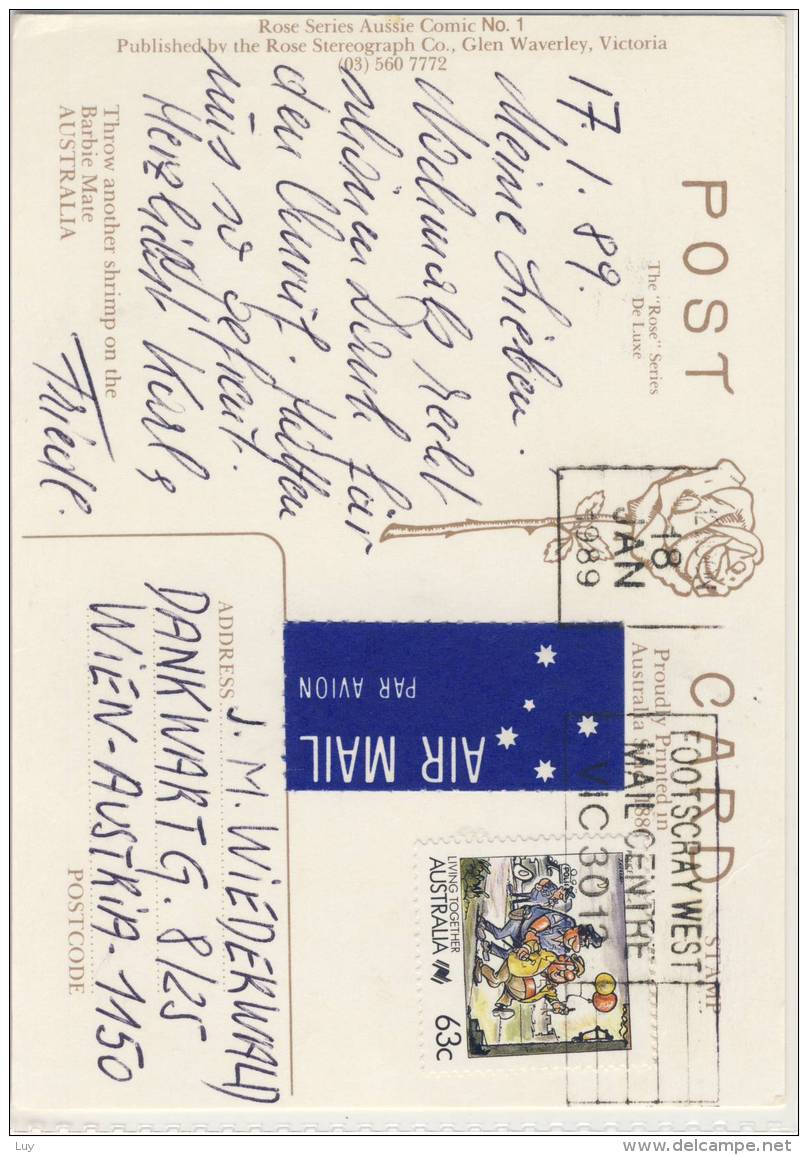 Rose Series Aussie Comic No. 1
Published by the Rose Stereograph Co., Glen Waverley, Victoria
(03) 560 7772
POST CARD
The "Rose" Series
De Luxe
Proudly Printed in
Australia
STAMP
17. 1. 89.
Meine Lieben.
Nochmals recht
schönen Dank für
den Anruf. Hatten
uns so gefreut.
Herzlichst Karl &
Friedl.
Throw another shrimp on the
Barbie Mate
AUSTRALIA
18
JAN
1989
FOOTSCRAY WEST
MAIL CENTRE
VIC 3012
AIR MAIL
PAR AVION
LIVING TOGETHER
AUSTRALIA
63c
POLICE
ADDRESS J. M. WIEDERWALD
DANKWARTG. 8/25
WIEN-AUSTRIA-1150
POSTCODE
Luy
www.delcampe.net